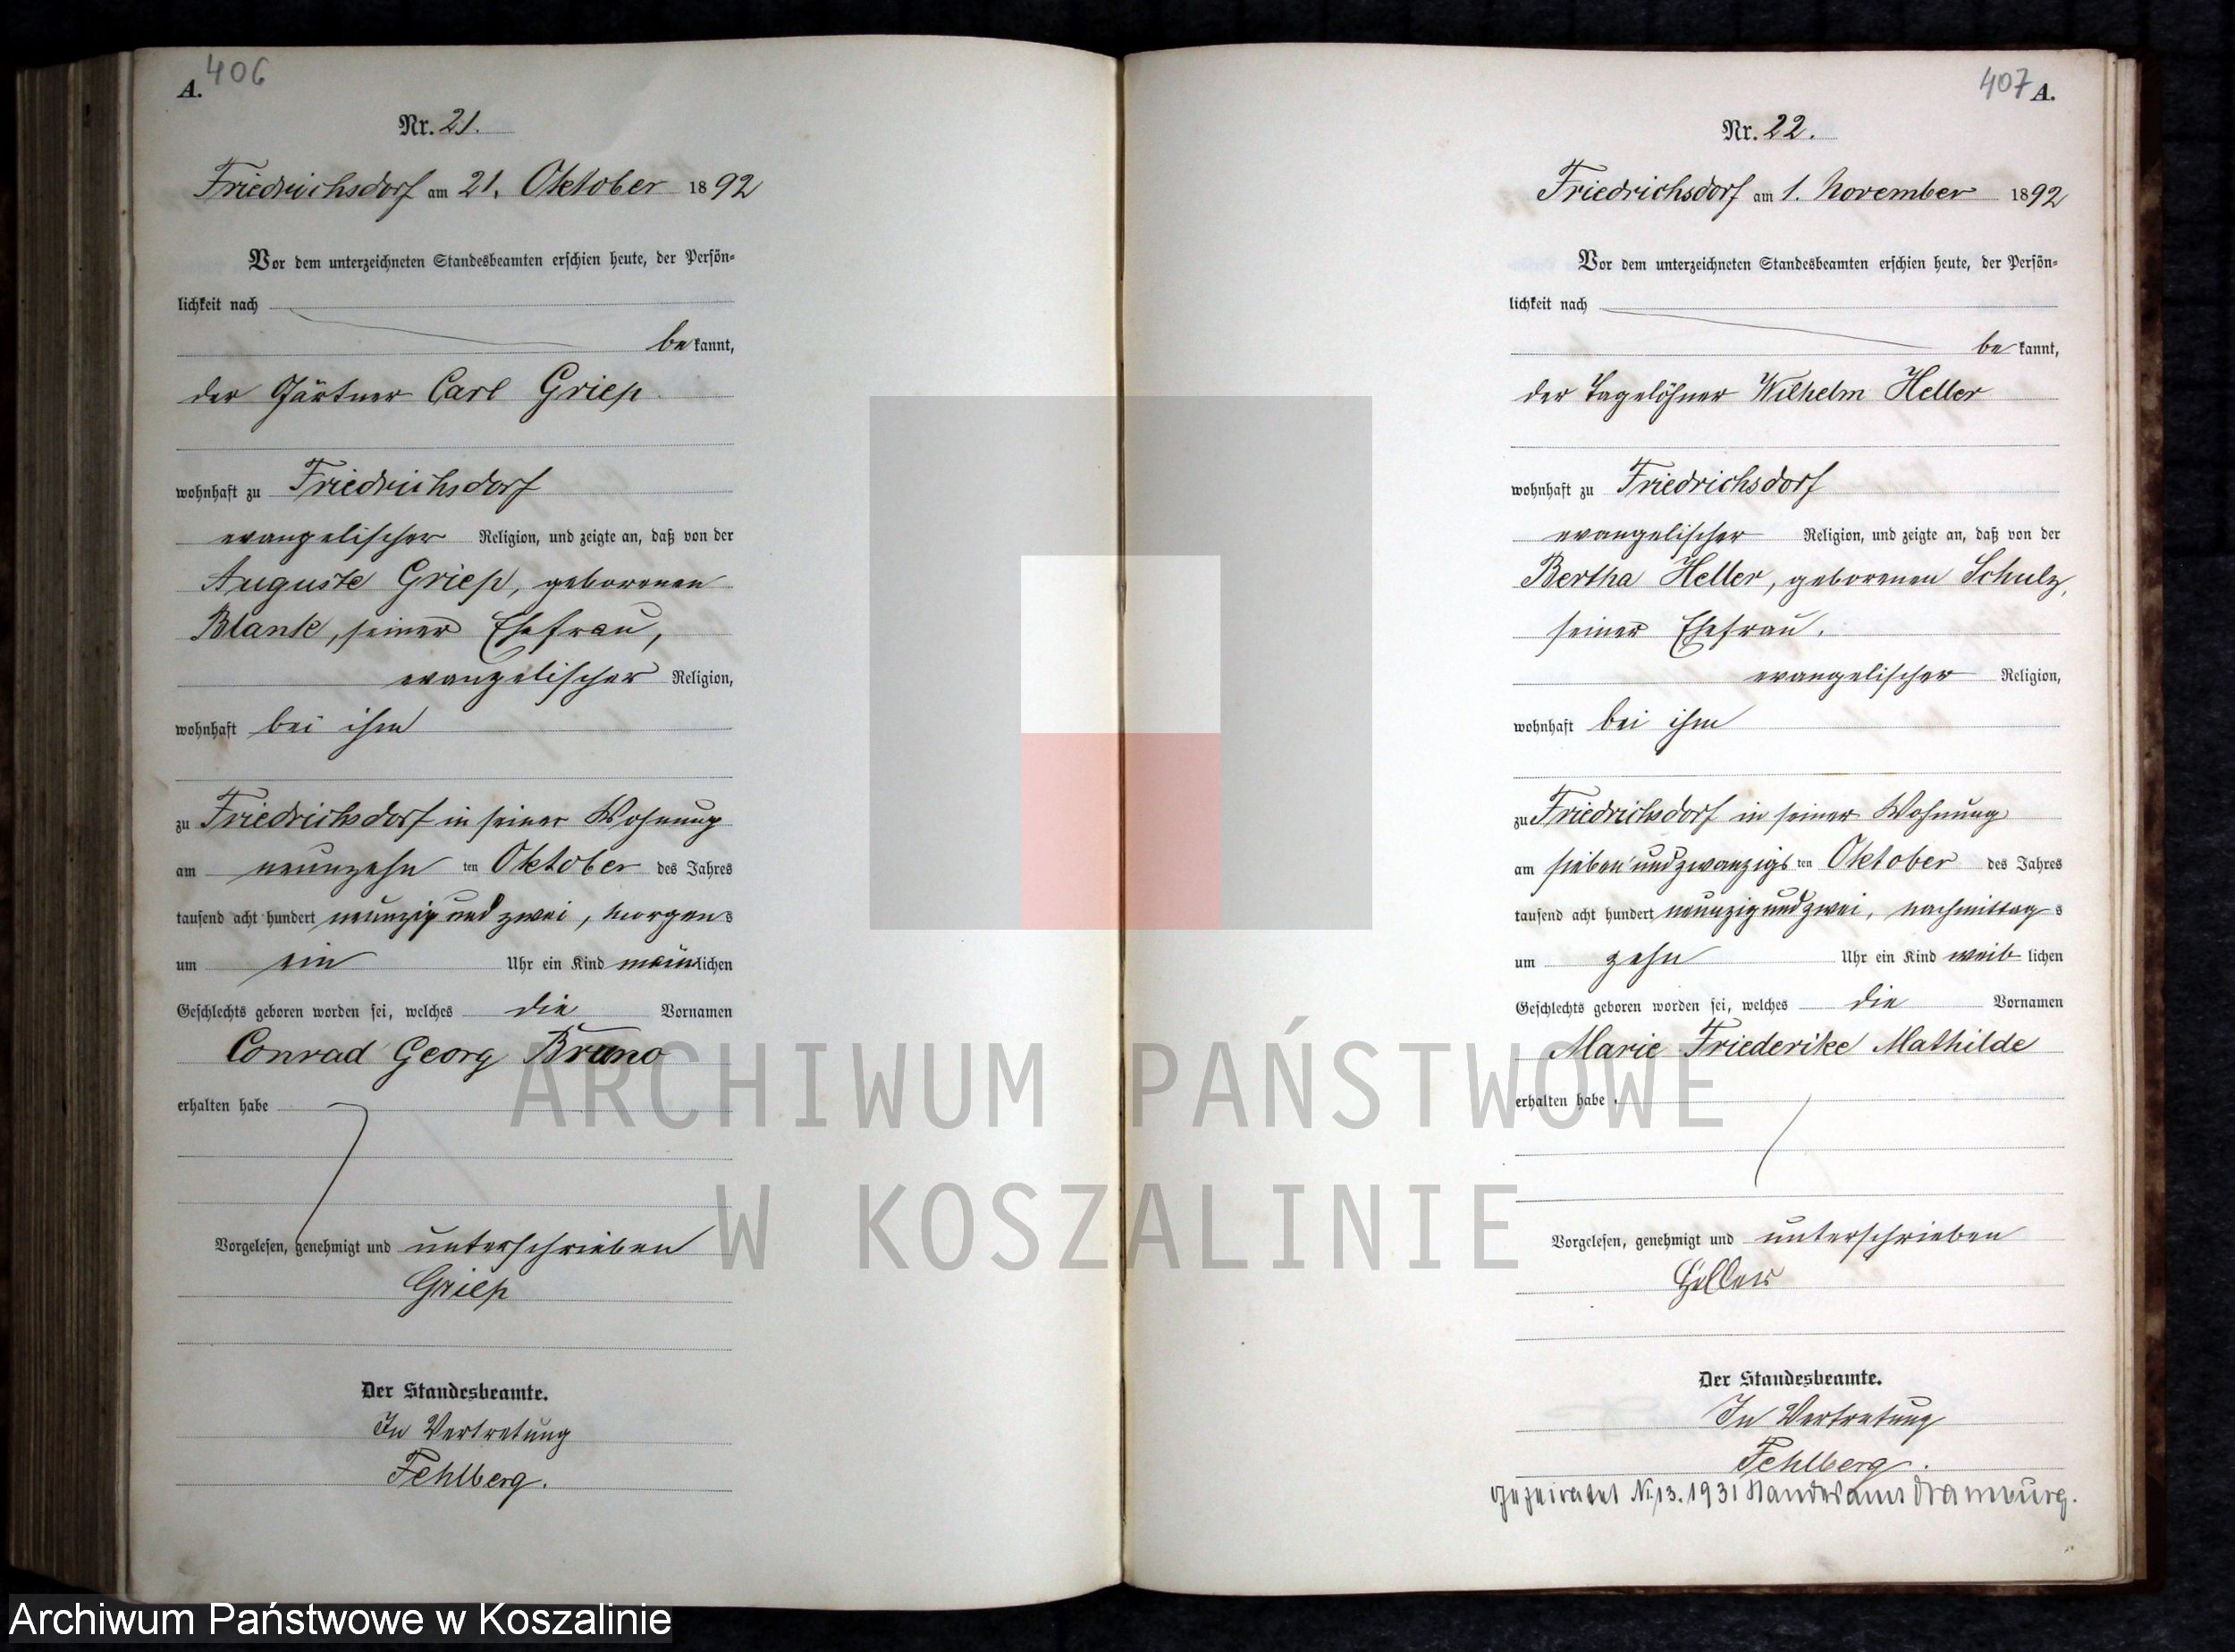 406
A.
Nr. 21.
Friedrichsdorf am 21. Oktober 1892
Vor dem unterzeichneten Standesbeamten erschien heute, der Persön-
lichkeit nach
bekannt,
der Gärtner Carl Griep
wohnhaft zu Friedrichsdorf
evangelischer Religion, und zeigte an, daß von der
Auguste Griep, geborenen
Blank, seiner Ehefrau,
evangelischer Religion,
wohnhaft bei ihm
zu Friedrichsdorf in seiner Wohnung
am neunzehn ten Oktober des Jahres
tausend acht hundert neunzig und zwei, morgens
um ein Uhr ein Kind männlichen
Geschlechts geboren worden sei, welches die Vornamen
Conrad Georg Bruno
erhalten habe
Vorgelesen, genehmigt und unterschrieben
Griep
Der Standesbeamte.
In Vertretung
Fehlberg.
407 A.
Nr. 22.
Friedrichsdorf am 1. November 1892
Vor dem unterzeichneten Standesbeamten erschien heute, der Persön-
lichkeit nach
bekannt,
der Tagelöhner Wilhelm Heller
wohnhaft zu Friedrichsdorf
evangelischer Religion, und zeigte an, daß von der
Bertha Heller, geborenen Schulz,
seiner Ehefrau,
evangelischer Religion,
wohnhaft bei ihm
zu Friedrichsdorf in seiner Wohnung
am siebenundzwanzigsten Oktober des Jahres
tausend acht hundert neunzig und zwei, nachmittags
um zehn Uhr ein Kind weiblichen
Geschlechts geboren worden sei, welches die Vornamen
Marie Friederike Mathilde
erhalten habe.
Vorgelesen, genehmigt und unterschrieben
Heller
Der Standesbeamte.
In Vertretung
Fehlberg.
geheiratet Nr. 13. 1931 Standesamt Dramburg.
ARCHIWUM PAŃSTWOWE
W KOSZALINIE
Archiwum Państwowe w Koszalinie